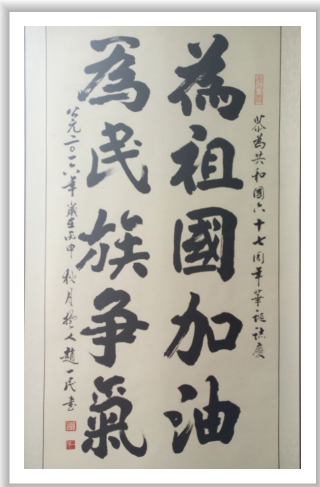 恭為共和國六十七周年華誕誌慶
為祖國加油
為民族争氣
公元二〇一六年歲在丙申秋月趙一民書